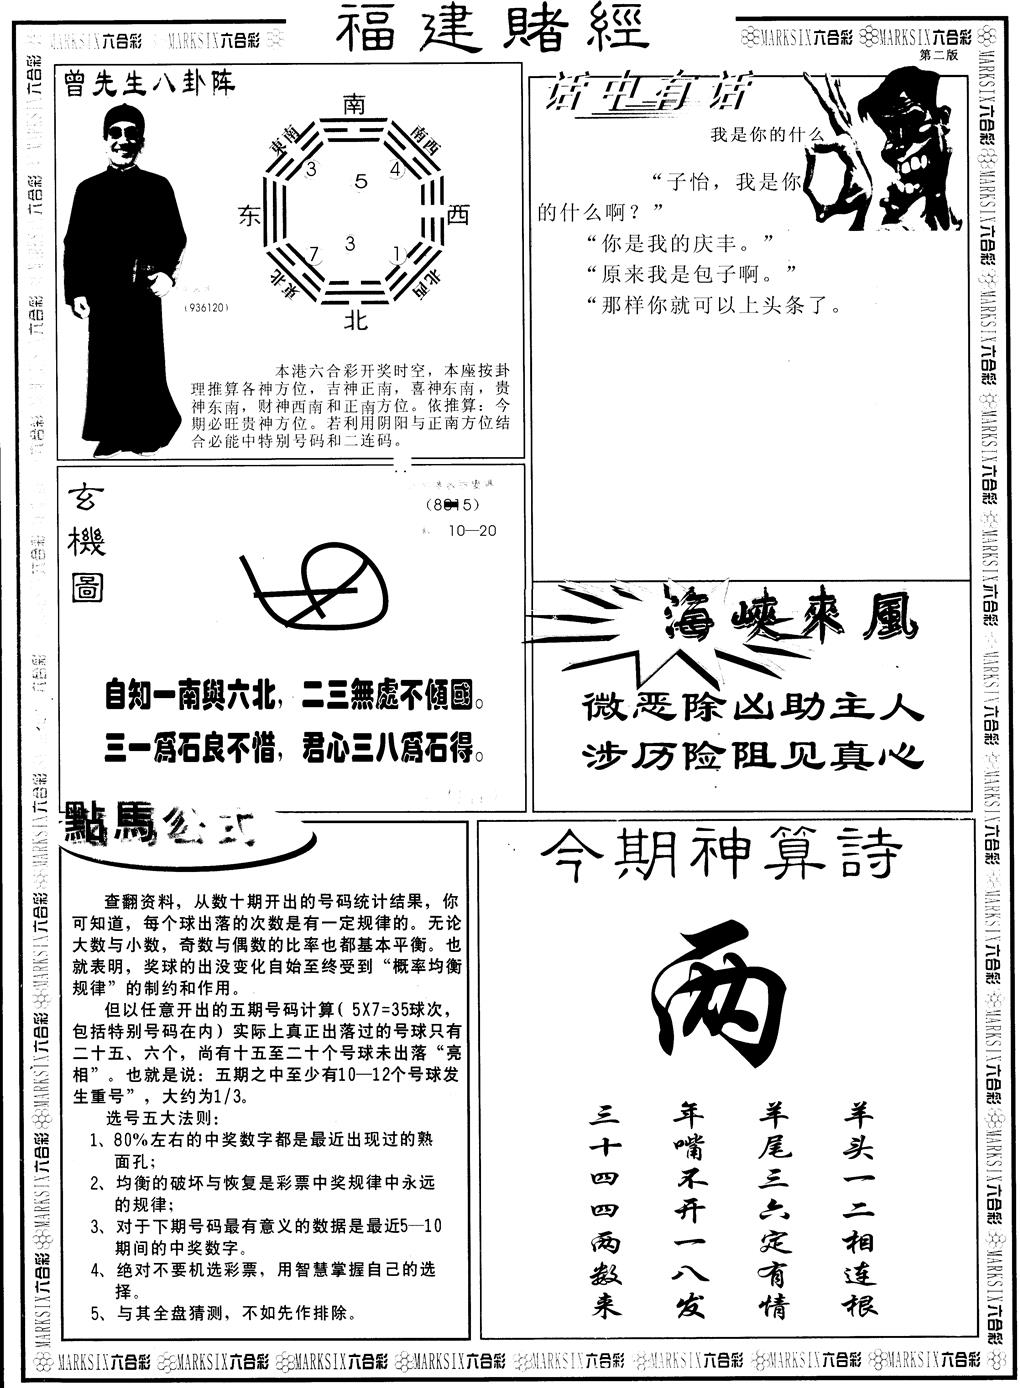 福建賭經
MARKSIX六合彩 MARKSIX六合彩
MARKSIX六合彩 MARKSIX六合彩
第二版
曾先生八卦阵
南
東南
南西
3
4
5
东
西
7
3
1
東北
北西
北
(936120)
本港六合彩开奖时空，本座按卦
理推算各神方位，吉神正南，喜神东南，贵
神东南，财神西南和正南方位。依推算：今
期必旺贵神方位。若利用阴阳与正南方位结
合必能中特别号码和二连码。
话中有话
我是你的什么
“子怡，我是你
的什么啊？”
“你是我的庆丰。”
“原来我是包子啊。”
“那样你就可以上头条了。
玄機圖
10—20
自知一南與六北，二三無處不傾國。
三一爲石良不惜，君心三八爲石得。
海峽來風
微恶除凶助主人
涉历险阻见真心
點馬公式
查翻资料，从数十期开出的号码统计结果，你
可知道，每个球出落的次数是有一定规律的。无论
大数与小数，奇数与偶数的比率也都基本平衡。也
就表明，奖球的出没变化自始至终受到“概率均衡
规律”的制约和作用。
但以任意开出的五期号码计算( 5X7=35球次，
包括特别号码在内) 实际上真正出落过的号球只有
二十五、六个，尚有十五至二十个号球未出落“亮
相”。也就是说：五期之中至少有10—12个号球发
生重号”，大约为1/3。
选号五大法则:
1、80%左右的中奖数字都是最近出现过的熟
面孔;
2、均衡的破坏与恢复是彩票中奖规律中永远
的规律;
3、对于下期号码最有意义的数据是最近5—10
期间的中奖数字。
4、绝对不要机选彩票，用智慧掌握自己的选
择。
5、与其全盘猜测，不如先作排除。
今期神算詩
两
羊头一二相连根
羊尾三六定有情
年嘴不开一八发
三十四四两数来
MARKSIX六合彩 MARKSIX六合彩 MARKSIX六合彩 MARKSIX六合彩 MARKSIX六合彩 MARKSIX六合彩 MARKSIX六合彩 MARKSIX六合彩